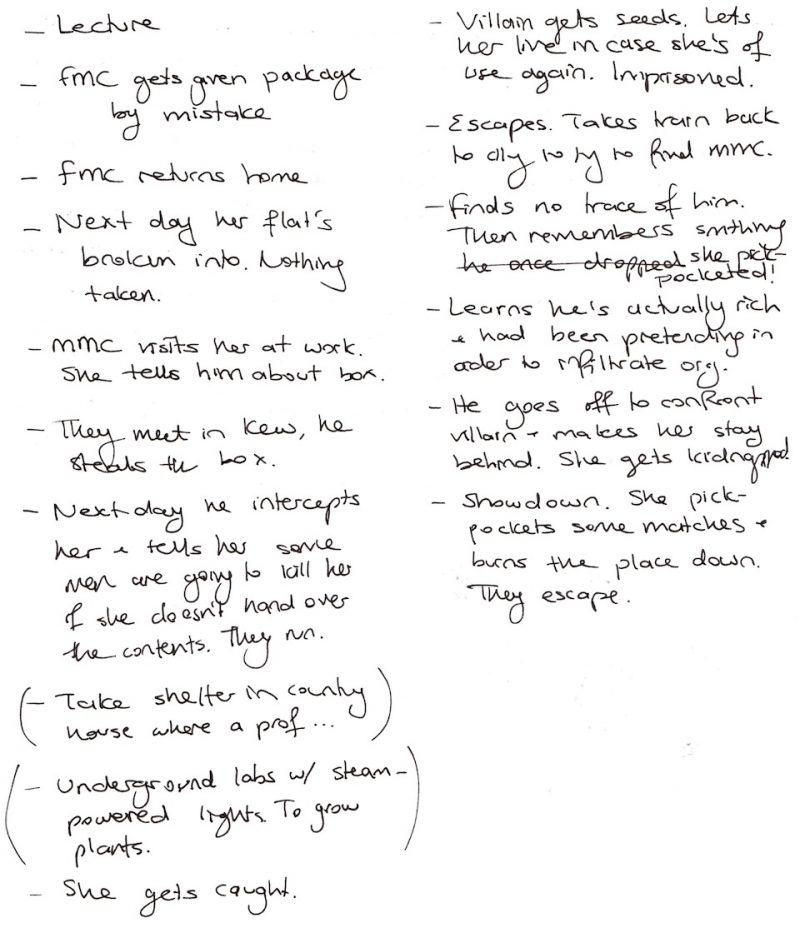 - Lecture
- fmc gets given package
by mistake
- fmc returns home
- Next day her flat's
broken into. Nothing
taken.
- mmc visits her at work.
She tells him about box.
- They meet in Kew, he
steals the box.
- Next day he intercepts
her + tells her some
men are going to kill her
if she doesn't hand over
the contents. They run.
(- Take shelter in country
house where a prof ... )
(- Underground labs w/ steam-
powered lights. To grow
plants. )
- She gets caught.
- Villain gets seeds. Lets
her live in case she's of
use again. Imprisoned.
- Escapes. Takes train back
to city to try to find mmc.
- Finds no trace of him.
Then remembers smthing
he once dropped she pick-
pocketed!
- Learns he's actually rich
+ had been pretending in
order to infiltrate org.
- He goes off to confront
villain + makes her stay
behind. She gets kidnapped.
- Showdown. She pick-
pockets some matches +
burns the place down.
They escape.